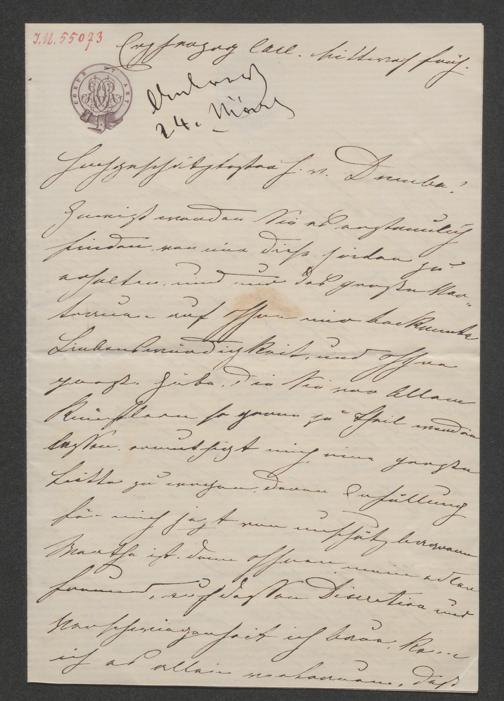 I.N. 55073
Erzherzog Carl. Mittwoch früh.
24. März
Hochgeschätztester H. v. Dumba!
Gewiß werden Sie es erstaunlich
finden von mir diese Zeilen zu
erhalten, und nur das große Ver-
trauen auf Ihre mir bekannte
Liebenswürdigkeit, und Ihre
große Güte, die Sie vor Allem
Künstlern so gerne zu Theil werden
lassen, ermuthigt mich eine große
Bitte zu wagen, deren Erfüllung
für mich jetzt von unschätzbarem
Werthe ist, denn Ihnen mein edler
Freund, auf dessen Discretion und
Verschwiegenheit ich baue, kann
ich es allein vertrauen, daß